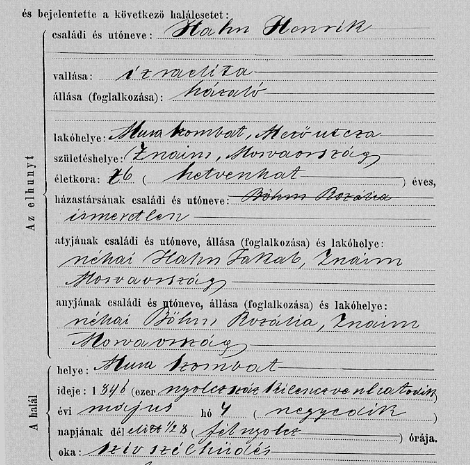 és bejelentette a következő halálesetet:
családi és utóneve: Hahn Henrik
vallása: izraelita
állása (foglalkozása): házaló
lakóhelye: Mura Szombat, Mező utcza
születéshelye: Znaim, Morvaország
életkora: 76 (hetvenhat) éves,
házastársának családi és utóneve: Böhm Rozália
ismeretlen
atyjának családi és utóneve, állása (foglalkozása) és lakóhelye:
néhai Hahn Jakab, Znaim
Morvaország
anyjának családi és utóneve, állása (foglalkozása) és lakóhelye:
néhai Böhm Rozália, Znaim
Morvaország
Az elhunyt
helye: Mura Szombat
ideje: 1896 (ezer nyolczszáz kilenczvenhatodik
évi május hó 4 (negyedik
napjának dél előtt 1/2 8 (fél nyolcz) órája.
oka: szív szélhűdés
A halál